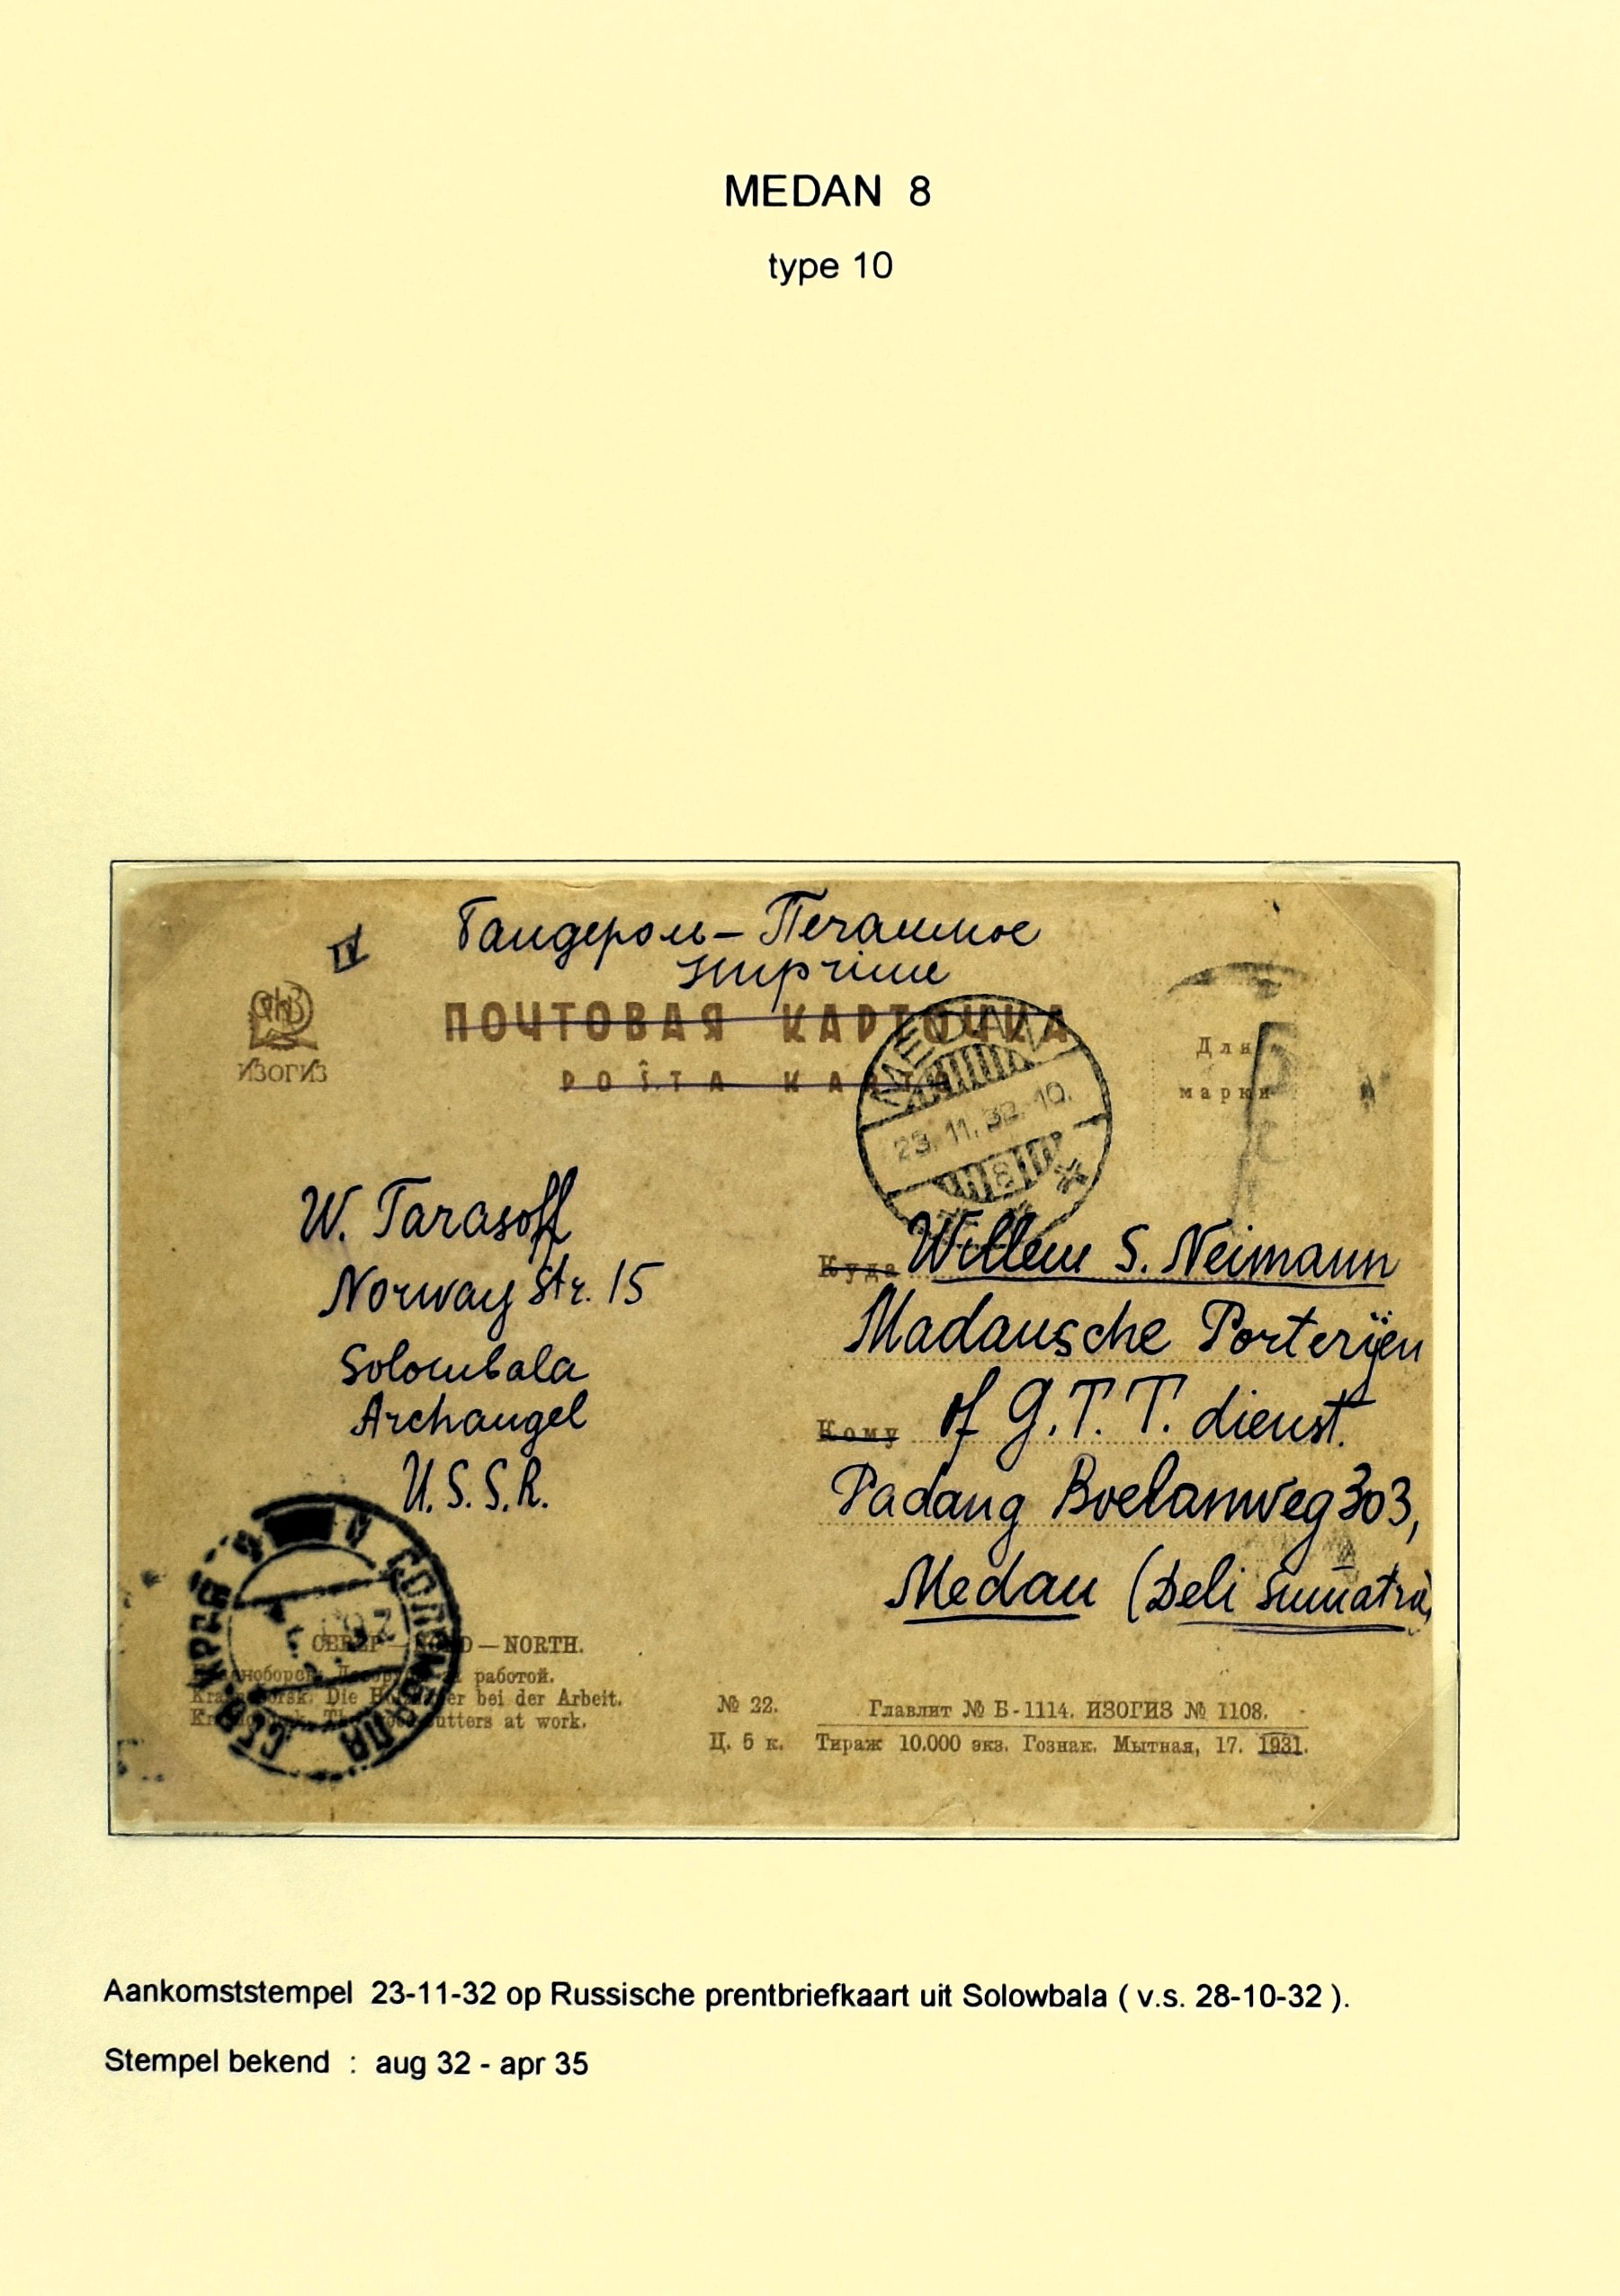 MEDAN 8
type 10
IV
Бандероль – Печатное
Imprimé
ПОЧТОВАЯ КАРТОЧКА
POŜTA KARTO
ИЗОГИЗ
Для
марки
MEDAN
23.11.32.10.
8
W. Tarasoff
Norway Str. 15
Solombala
Archangel
U.S.S.R.
Куда Willem S. Neimann
Madansche Porterijen
Кому of G.T.T. dienst.
Padang Boelanweg 303,
Medan (Deli Sumatra)
СЕВЕР — NORD — NORTH.
Красноборск. Лесорубы за работой.
Krasnoborsk. Die Holzhauer bei der Arbeit.
Krasnoborsk. The woodcutters at work.
№ 22.
Ц. 5 к.
Главлит № Б-1114. ИЗОГИЗ № 1108.
Тираж 10.000 экз. Гознак. Мытная, 17. 1931.
Aankomststempel 23-11-32 op Russische prentbriefkaart uit Solowbala ( v.s. 28-10-32 ).
Stempel bekend : aug 32 - apr 35